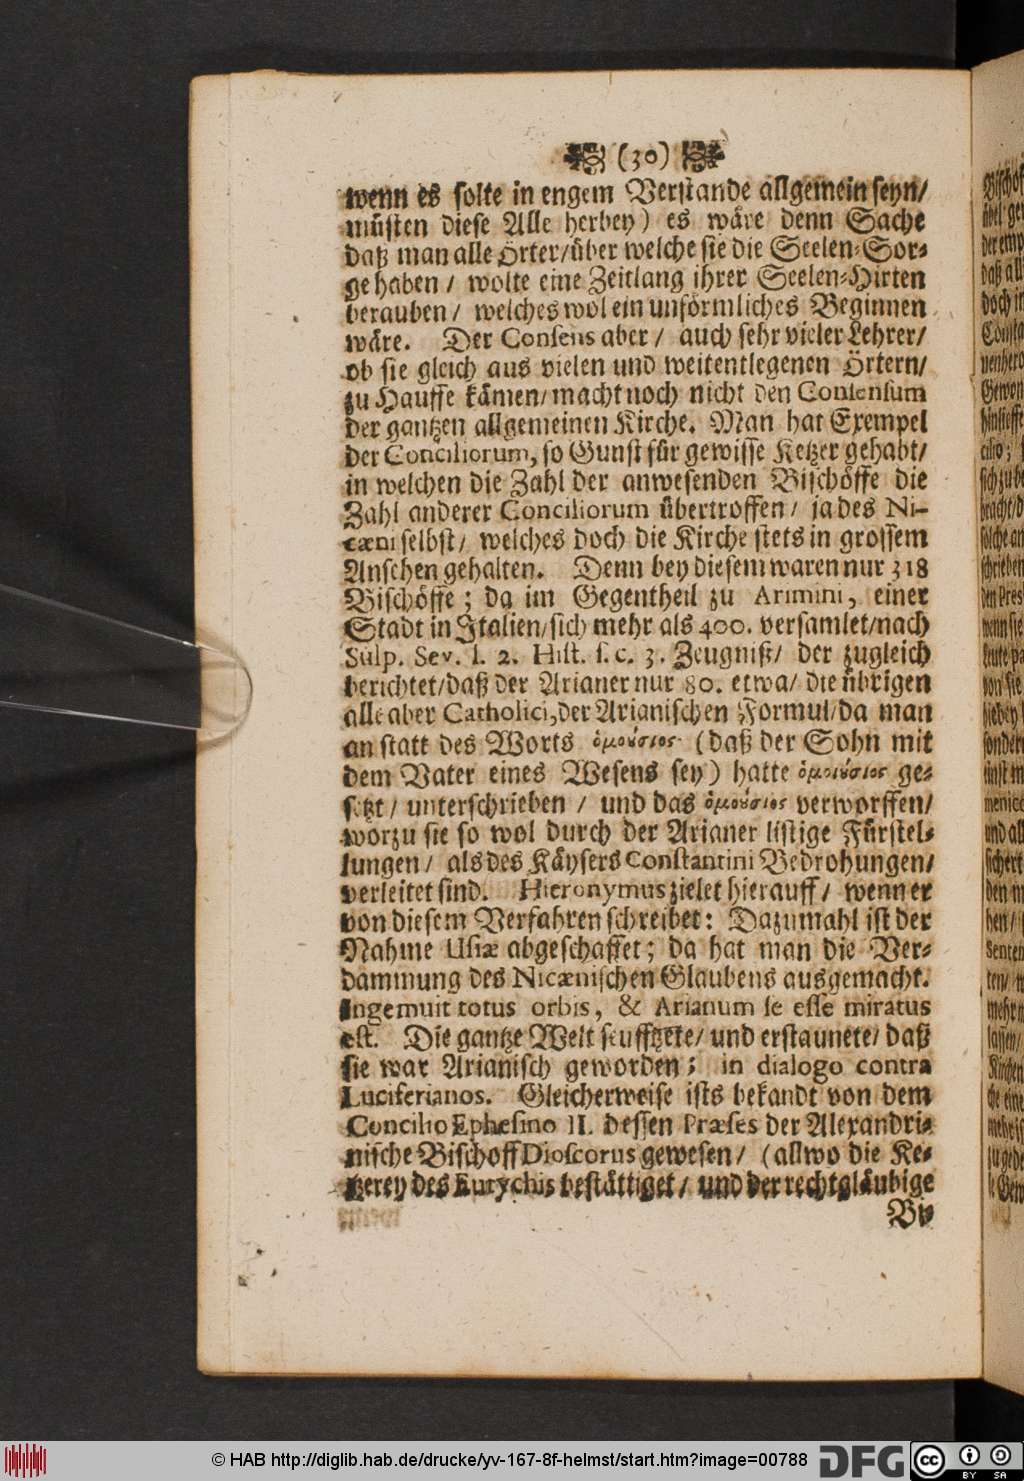 (30)
wenn es solte in engem Verstande allgemein seyn/
müsten diese Alle herbey) es wäre denn Sache
daß man alle Örter/über welche sie die Seelen-Sor-
ge haben / wolte eine Zeitlang ihrer Seelen-Hirten
berauben / welches wol ein unförmliches Beginnen
wäre. Der Consens aber / auch sehr vieler Lehrer/
ob sie gleich aus vielen und weitentlegenen Örtern/
zu Hauffe kämen/ macht noch nicht den Consensum
der gantzen allgemeinen Kirche. Man hat Exempel
der Conciliorum, so Gunst für gewisse Ketzer gehabt/
in welchen die Zahl der anwesenden Bischöffe die
Zahl anderer Conciliorum übertroffen/ ja des Ni-
cæni selbst/ welches doch die Kirche stets in grossem
Ansehen gehalten. Denn bey diesem waren nur 318
Bischöffe; da im Gegentheil zu Arimini, einer
Stadt in Italien/sich mehr als 400. versamlet/nach
Sulp. Sev. l. 2. Hist. s. c. 3. Zeugniß/ der zugleich
berichtet/daß der Arianer nur 80. etwa/ die übrigen
alle aber Catholici,der Arianischen Formul/da man
an statt des Worts ὁμούσιος (daß der Sohn mit
dem Vater eines Wesens sey) hatte ὁμοιύσιος ge-
setzt/ unterschrieben / und das ὁμούσιος verworffen/
worzu sie so wol durch der Arianer listige Fürstel-
lungen/ als des Käysers Constantini Bedrohungen/
verleitet sind. Hieronymus zielet hierauff/ wenn er
von diesem Verfahren schreibet: Dazumahl ist der
Nahme Usiæ abgeschaffet; da hat man die Ver-
dammung des Nicænischen Glaubens ausgemacht.
Ingemuit totus orbis, & Arianum se esse miratus
est. Die gantze Welt seufftzete/ und erstaunete/ daß
sie war Arianisch geworden; in dialogo contra
Luciferianos. Gleicherweise ists bekandt von dem
Concilio Ephesino II. dessen Præses der Alexandri-
nische Bischoff Dioscorus gewesen/ (allwo die Ke-
tzerey des Eutychis bestättiget/ und der rechtgläubige
Bi-
© HAB http://diglib.hab.de/drucke/yv-167-8f-helmst/start.htm?image=00788
DFG
cc
BY SA